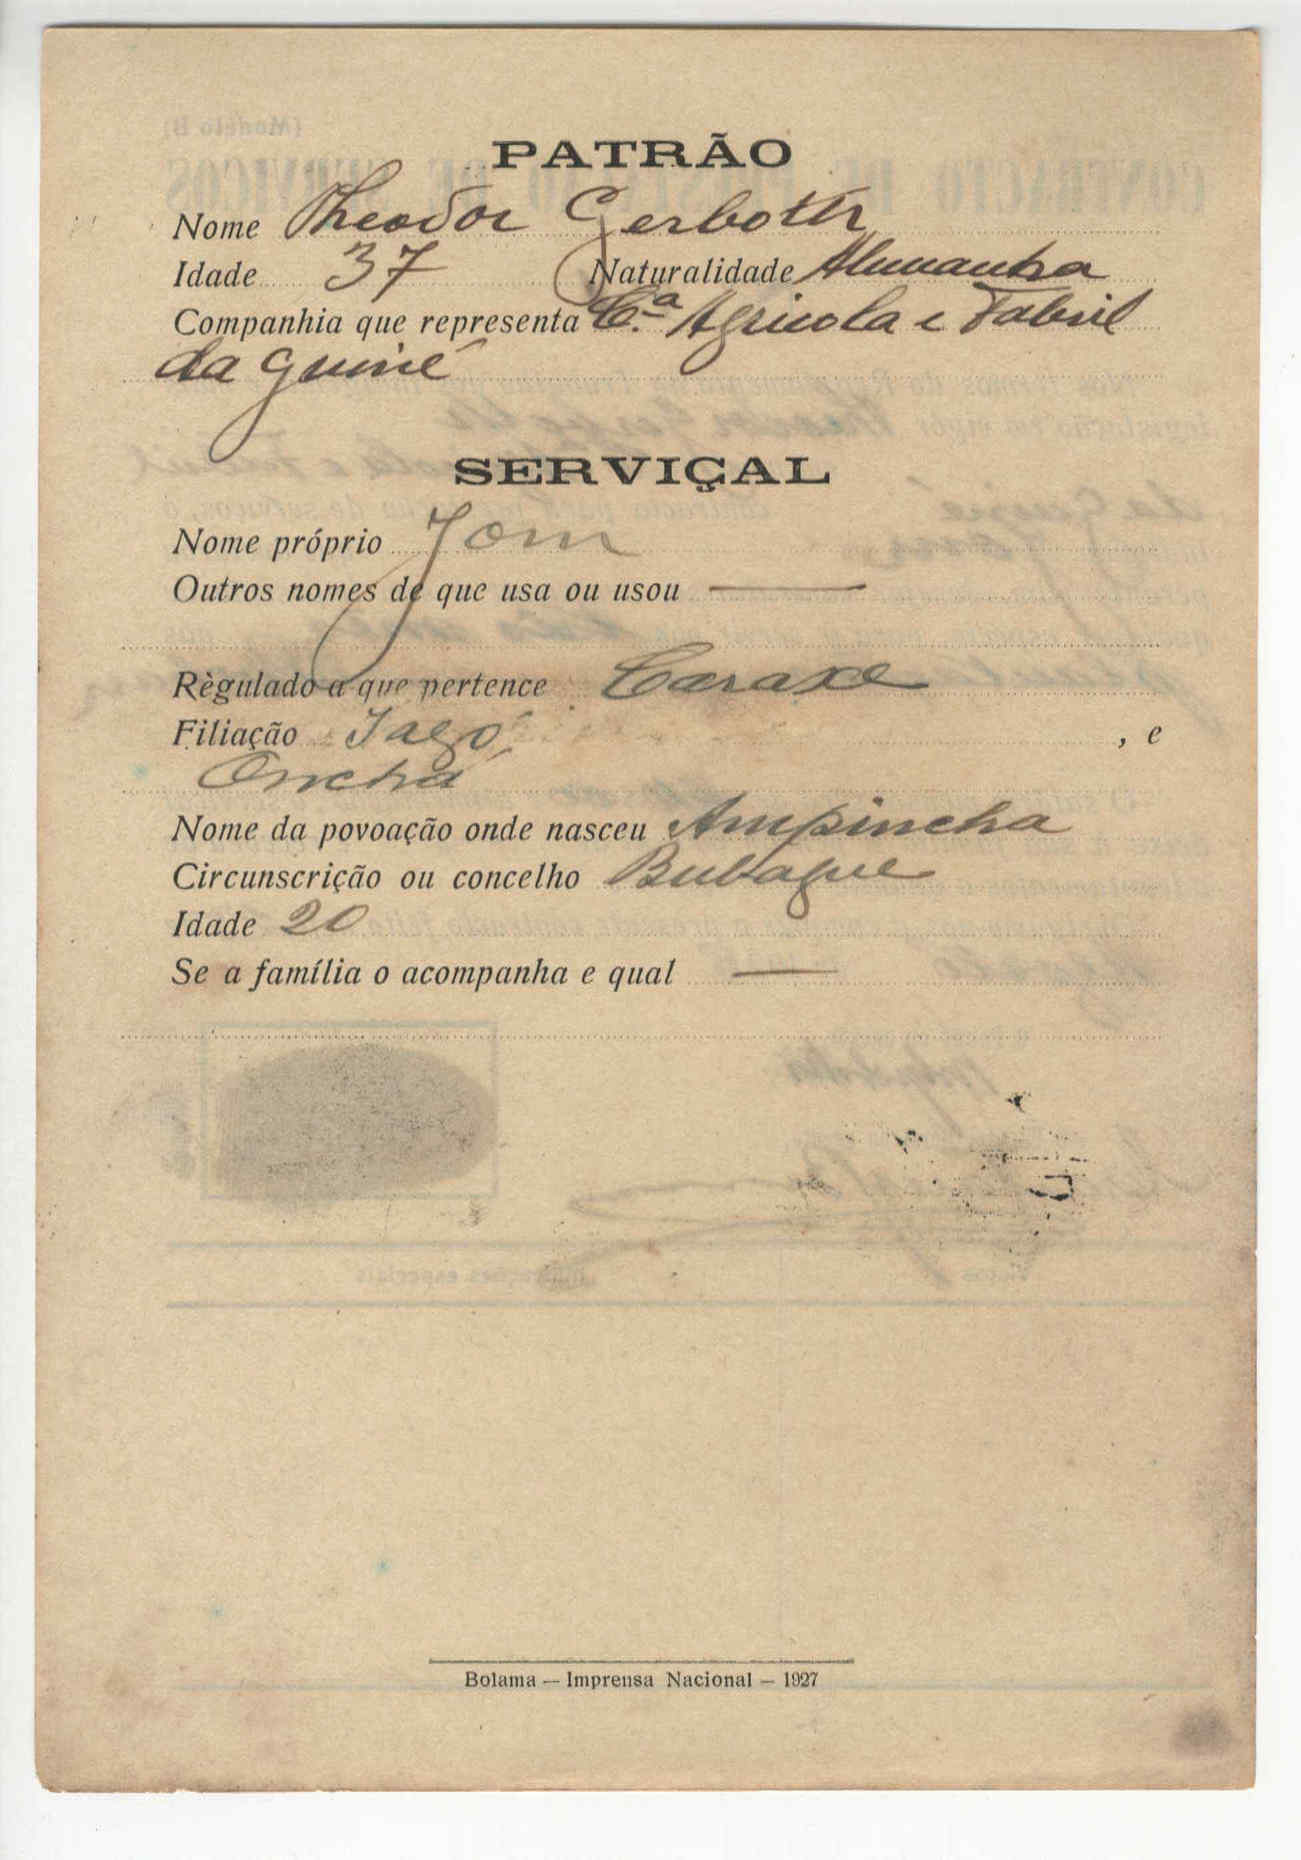 PATRÃO
Nome Theodor Gerboth
Idade 37 Naturalidade Alemanha
Companhia que representa C.ª Agricola e Fabril
da Guiné
SERVIÇAL
Nome próprio Jom
Outros nomes de que usa ou usou —
Règulado a que pertence Caraxe
Filiação Iagó , e
Onchá
Nome da povoação onde nasceu Ampincha
Circunscrição ou concelho Bubaque
Idade 20
Se a família o acompanha e qual —
Bolama — Imprensa Nacional — 1927